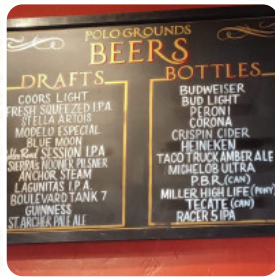 POLO GROUNDS
BEERS
DRAFTS
COORS LIGHT
FRESH SQUEEZED I.P.A.
STELLA ARTOIS
MODELO ESPECIAL
BLUE MOON
SESSION I.P.A
SIERRAS NOONER PILSNER
ANCHOR STEAM
LAGUNITAS I.P.A.
BOULEVARD TANK 7
GUINNESS
ST. ARCHER PALE ALE
BOTTLES
BUDWEISER
BUD LIGHT
PERONI
CORONA
CRISPIN CIDER
HEINEKEN
TACO TRUCK AMBER ALE
MICHELOB ULTRA
P.B.R. (CAN)
MILLER HIGH LIFE (PONY)
TECATE (CAN)
RACER 5 IPA